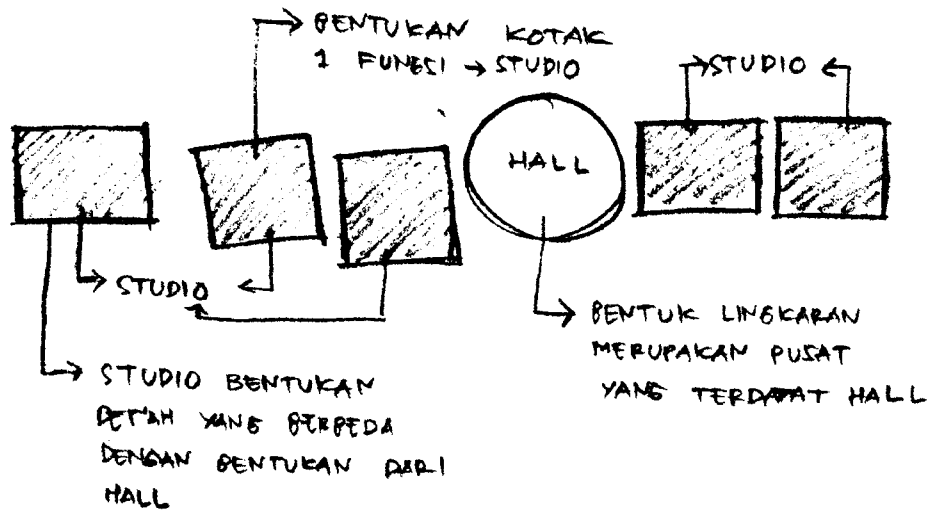 BENTUKAN KOTAK
1 FUNGSI → STUDIO
STUDIO
HALL
STUDIO
BENTUK LINGKARAN
MERUPAKAN PUSAT
YANG TERDAPAT HALL
STUDIO BENTUKAN
DENAH YANG BERBEDA
DENGAN BENTUKAN DARI
HALL